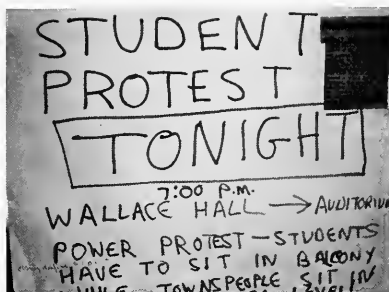 STUDENT
PROTEST
TONIGHT
7:00 P.M.
WALLACE HALL → AUDITORIUM
POWER PROTEST — STUDENTS
HAVE TO SIT IN BALCONY
WHILE TOWNSPEOPLE SIT IN